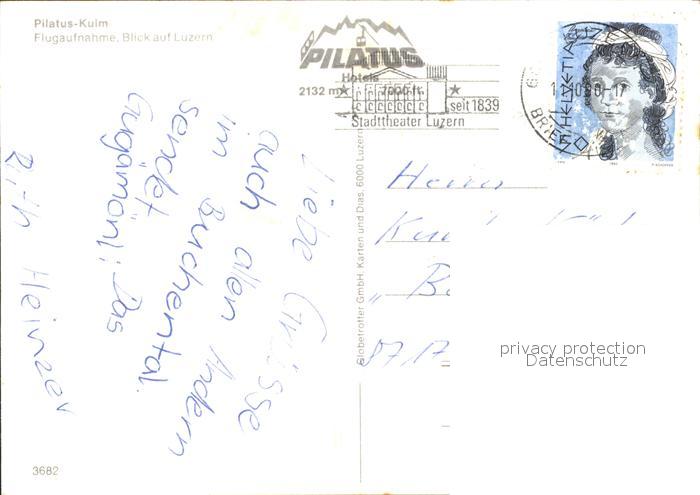 Pilatus-Kulm
Flugaufnahme, Blick auf Luzern
PILATUS
Hotels
2132 m 7000 ft.
seit 1839
Stadttheater Luzern
HELVETIA
Liebe Grüsse
auch allen Andern
im Buchental.
Sendet
Das
Heinzer
Globetrotter GmbH, Karten und Dias, 6000 Luzern
Herrn
8717
privacy protection
Datenschutz
3682